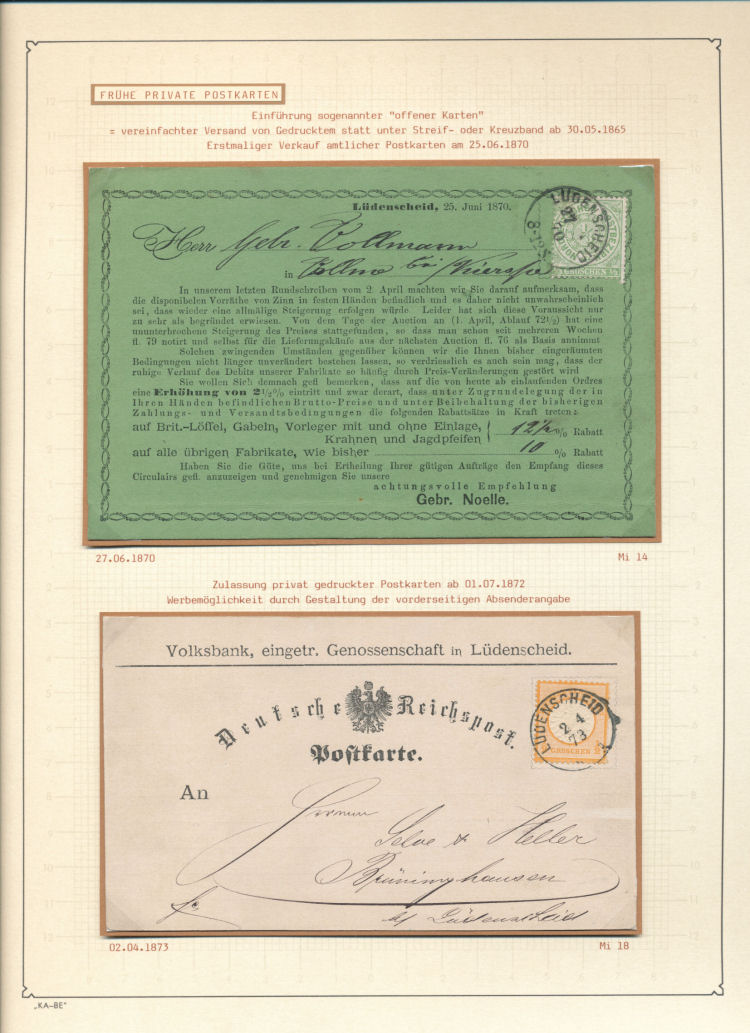 FRÜHE PRIVATE POSTKARTEN
Einführung sogenannter "offener Karten"
= vereinfachter Versand von Gedrucktem statt unter Streif- oder Kreuzband ab 30.05.1865
Erstmaliger Verkauf amtlicher Postkarten am 25.06.1870
Lüdenscheid, 25. Juni 1870.
LÜDENSCHEID
27
8-12
GROSCHEN
Herr Gebr. Vollmann
in Vollme bei
In unserem letzten Rundschreiben vom 2. April machten wir Sie darauf aufmerksam, dass
die disponibelen Vorräthe von Zinn in festen Händen befindlich und es daher nicht unwahrscheinlich
sei, dass wieder eine allmälige Steigerung erfolgen würde. Leider hat sich diese Voraussicht nur
zu sehr als begründet erwiesen. Von dem Tage der Auction an (1. April, Ablauf 72½) hat eine
ununterbrochene Steigerung des Preises stattgefunden, so dass man schon seit mehreren Wochen
fl. 79 notirt und selbst für die Lieferungskäufe aus der nächsten Auction fl. 76 als Basis annimmt
Solchen zwingenden Umständen gegenüber können wir die Ihnen bisher eingeräumten
Bedingungen nicht länger unverändert bestehen lassen, so verdriesslich es auch sein mag, dass der
ruhige Verlauf des Debits unserer Fabrikate so häufig durch Preis-Veränderungen gestört wird
Sie wollen Sich demnach gefl bemerken, dass auf die von heute ab einlaufenden Ordres
eine Erhöhung von 2½% eintritt und zwar derart, dass unter Zugrundelegung der in
Ihren Händen befindlichen Brutto-Preise und unter Beibehaltung der bisherigen
Zahlungs- und Versandtsbedingungen die folgenden Rabattsätze in Kraft treten:
auf Brit.-Löffel, Gabeln, Vorleger mit und ohne Einlage,
Krahnen und Jagdpfeifen 12½ % Rabatt
auf alle übrigen Fabrikate, wie bisher 10 % Rabatt
Haben Sie die Güte, uns bei Ertheilung Ihrer gütigen Aufträge den Empfang dieses
Circulairs gefl. anzuzeigen und genehmigen Sie unsere
achtungsvolle Empfehlung
Gebr. Noelle.
27.06.1870 Mi 14
Zulassung privat gedruckter Postkarten ab 01.07.1872
Werbemöglichkeit durch Gestaltung der vorderseitigen Absenderangabe
Volksbank, eingetr. Genossenschaft in Lüdenscheid.
Deutsche Reichspost.
Postkarte.
LÜDENSCHEID
2 4
73
GROSCHEN
An
Herren
Selve & Heller
Brüninghausen
bei Lüdenscheid
02.04.1873 Mi 18
„KA-BE"